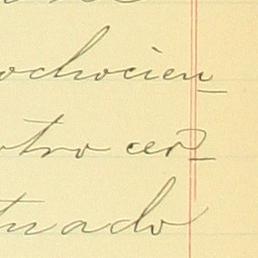 ochocien_
otro cer_
tuado